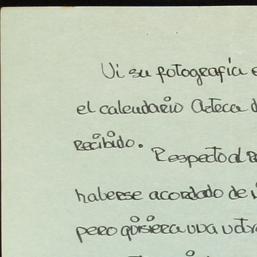 Vi su fotografía e
el calendario Azteca d
recibido.
Respecto al
haberse acordado de
pero quisiera una